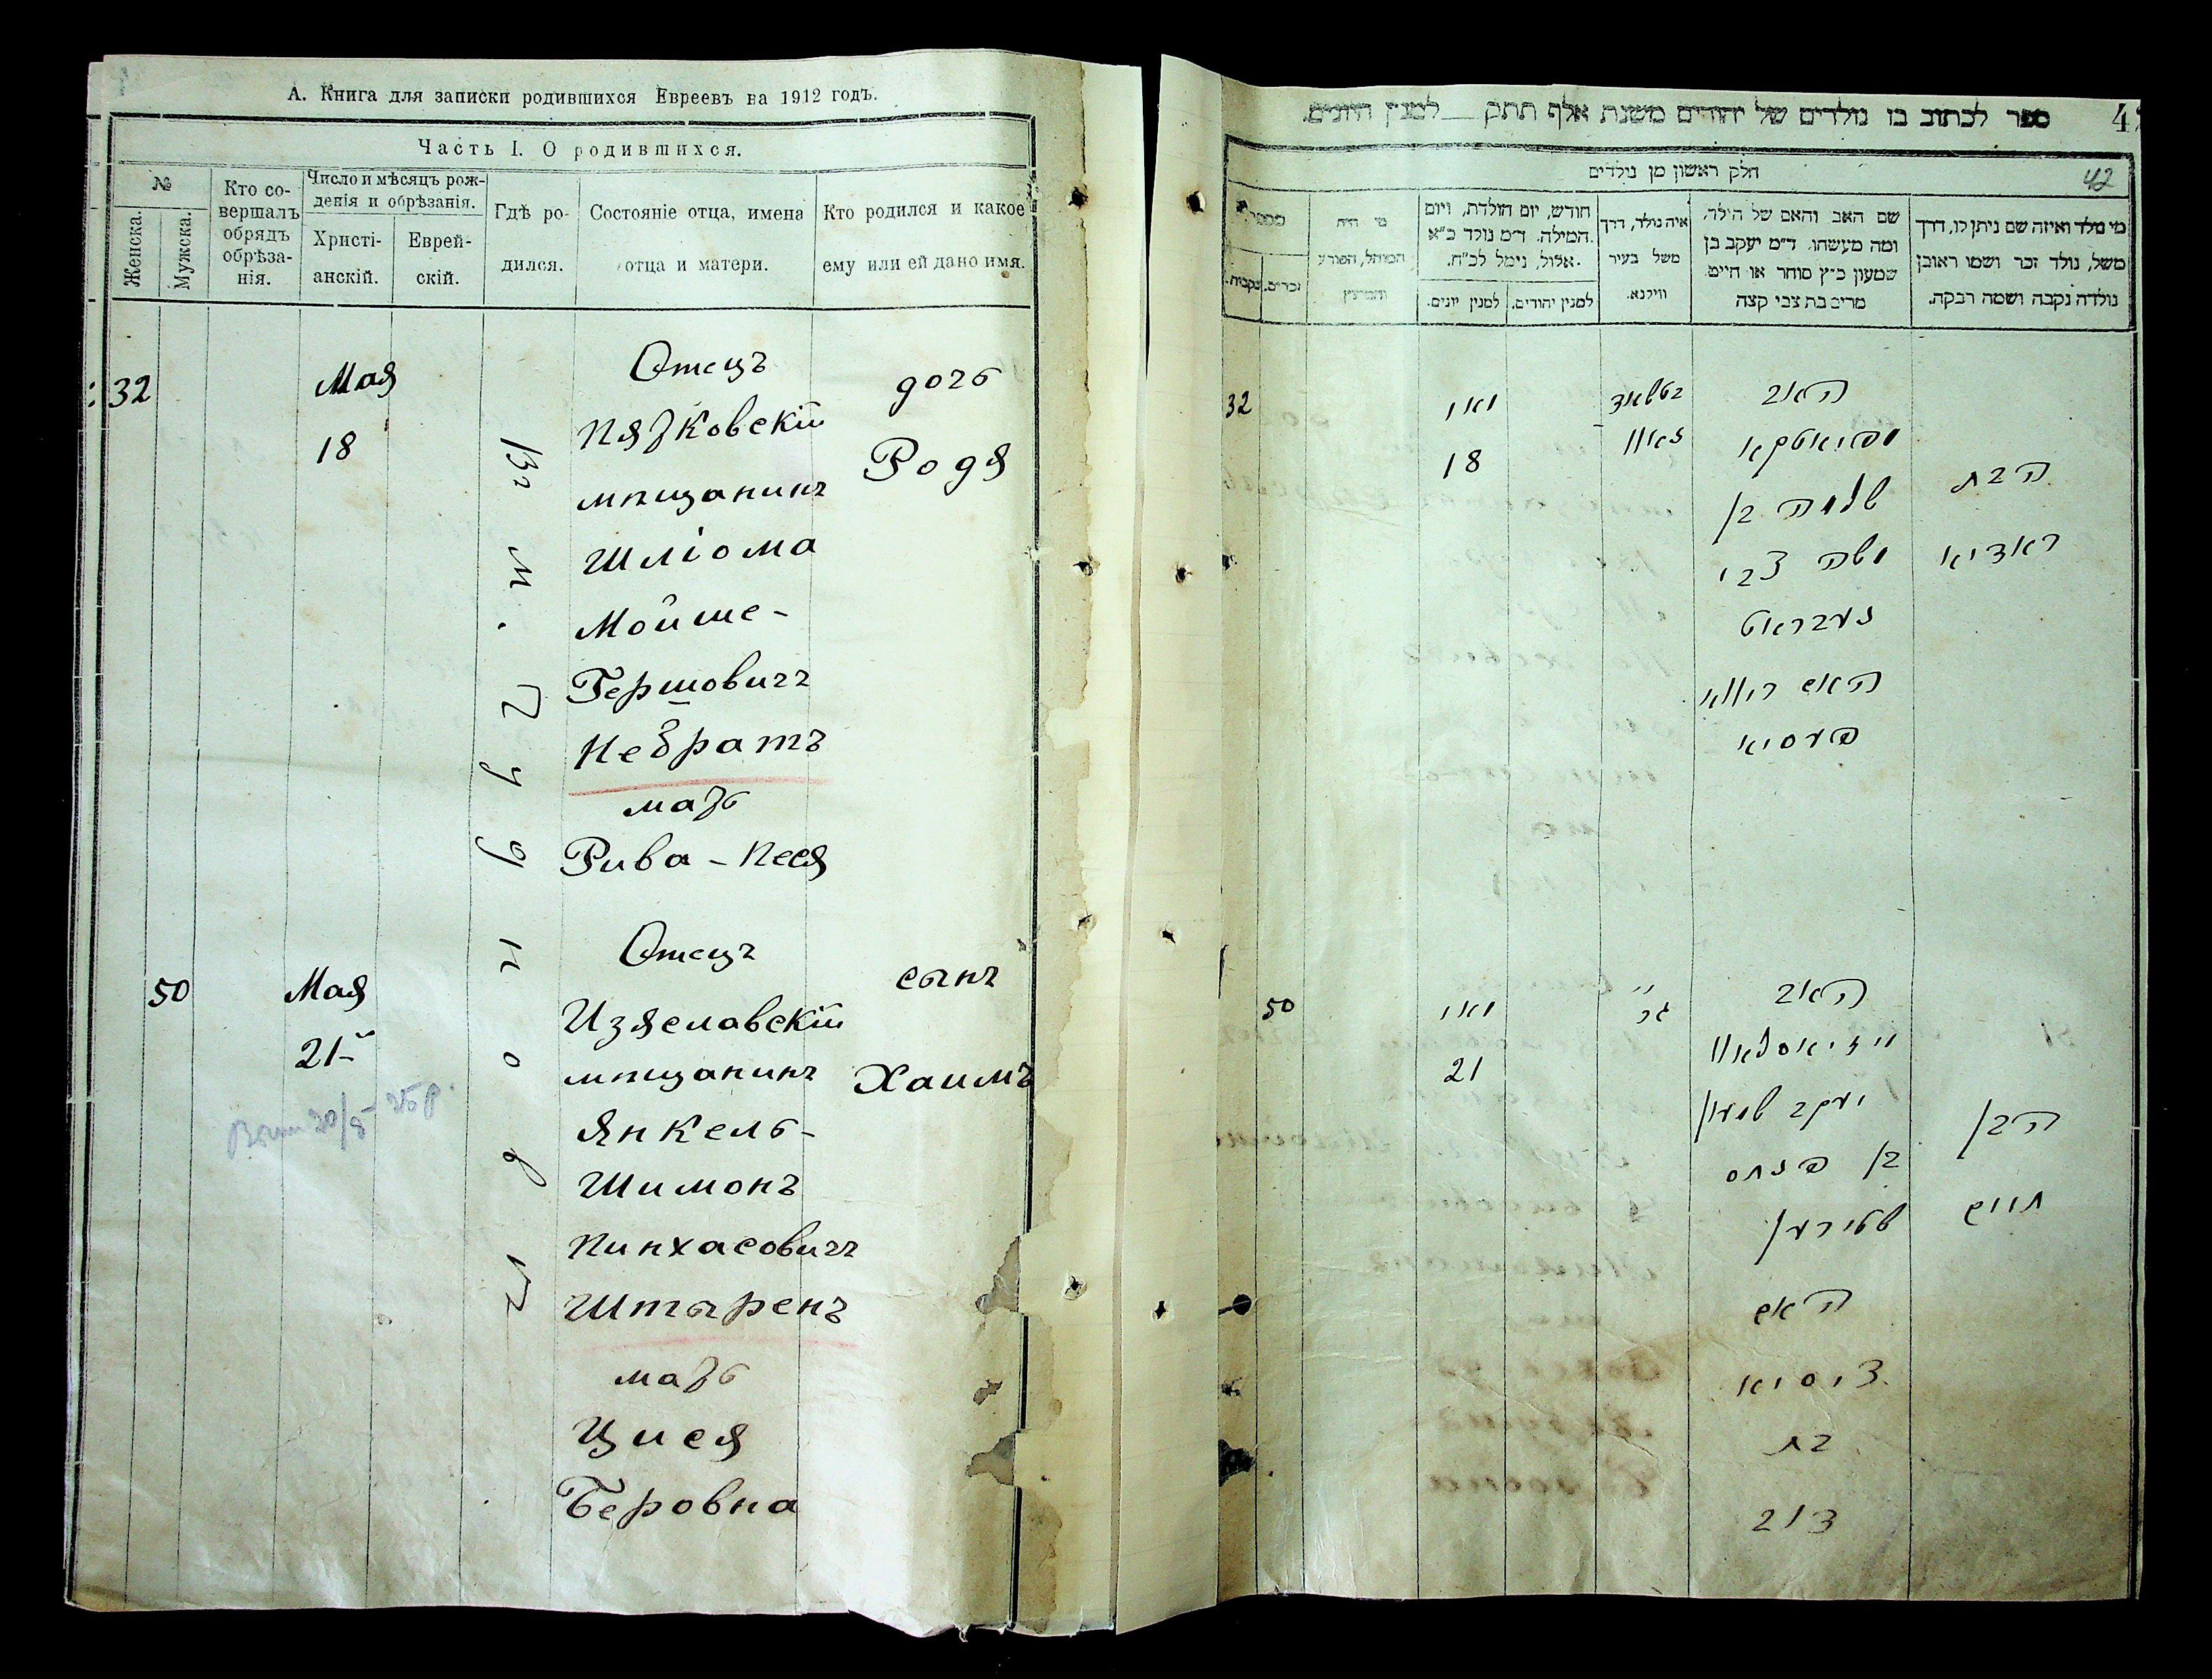 А. Книга для записки родившихся Евреевъ на 1912 годъ.
Часть I. О родившихся.
№
Женска.
Мужска.
Кто со-
вершалъ
обрядъ
обрѣза-
нія.
Число и мѣсяцъ рож-
денія и обрѣзанія.
Христі-
анскій.
Еврей-
скій.
Гдѣ ро-
дился.
Состояніе отца, имена
отца и матери.
Кто родился и какое
ему или ей дано имя.
32
Мая
18
Въ м.
Отецъ
Пятковскій
мѣщанинъ
Шліома
Мойше-
Гершовичъ
Небратъ
мать
Рива-Песя
дочь
Родя
50
Мая
21
20/5 25 р.
Отецъ
Изяславскій
мѣщанинъ
Янкель-
Шимонъ
Пинхасовичъ
Штыренъ
мать
Цися
Беровна
сынъ
Хаимъ
ספר לכתוב בו נולדים של יהודים משנת אלף תתק __ למנין היונים.
4
42
חלק ראשון מן נולדים
מספר
נקבות.
זכרים.
מי היה
המוהל, הפורע
והמוצץ
חודש, יום הולדת, ויום
המילה. ד״מ נולד כ״א
אלול, נימל לכ״ח.
למנין יונים.
למנין יהודים.
איה נולד, דרך
משל בעיר
ווילנא.
שם האב והאם של הילד,
ומה מעשהו. ד״מ יעקב בן
שמעון כ״ץ סוחר או חיים
מרים בת צבי קצה
מי נולד ואיזה שם ניתן לו, דרך
משל, נולד זכר ושמו ראובן
נולדה נקבה ושמה רבקה.
32
מאי
18
האב
שלמה בן
משה צבי
נעבראט
פעסיא
הבת
ראדיא
50
מאי
21
האב
יעקב שמעון
בן פנחס
שטירען
האם
ציסיא
בת
דוב
הבן
חיים